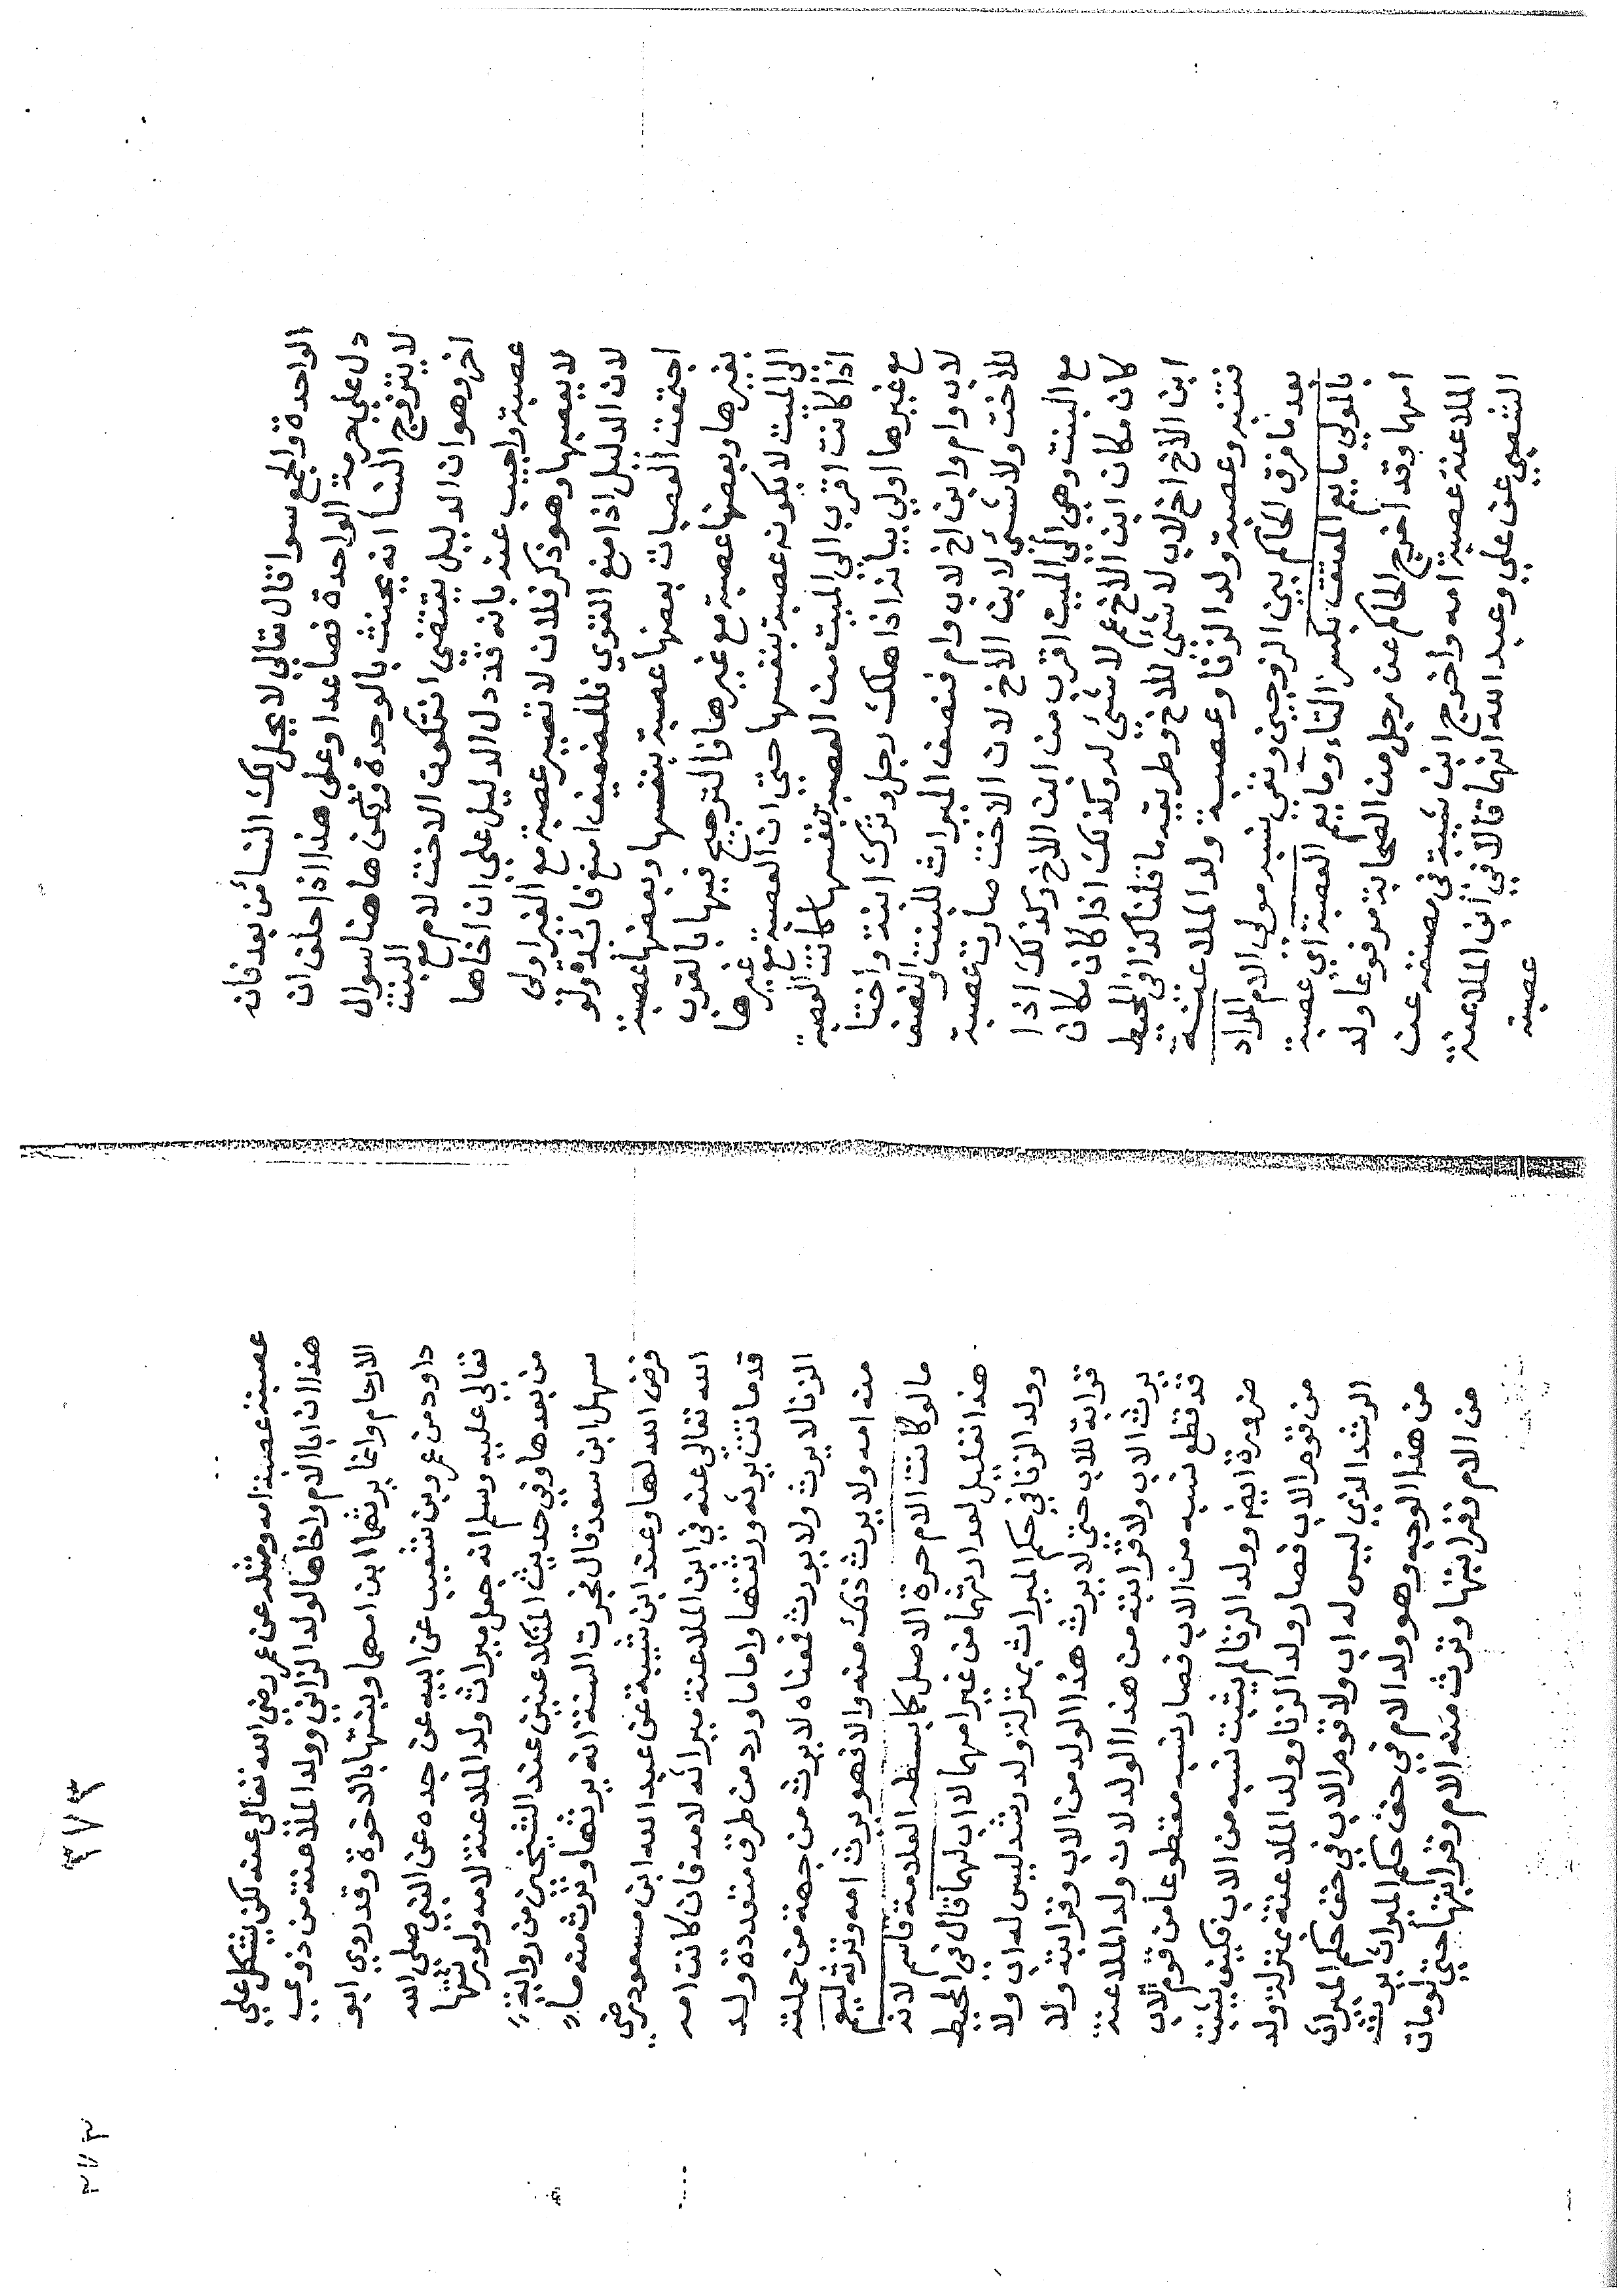 الواحدة والجمع سوا قال تعالى لا يحل لك النسا من بعد فانه
دل على حرمة الواحدة فصاعدا وعلى هذا اذا حلف ان
لا يتزوج النسا انه يحنث بالوحدة ولكن هاهنا سوال
اخر وهو ان الدليل يقتضي ان تكون الاخت لام مع البنت
عصبة واجيب عنه بانه قد دل الدليل على ان اخاها
لا يعصبها وهو ذكر فلان لا تصير عصبة مع الغير اولى
لان الدليل اذا منع القوي فللضعيف امنع فائدة ولو
اجتمعت العصبات بعضها عصبة بنفسها وبعضها عصبة
بغيرها وبعضها عصبة مع غيرها فالترجيح فيها بالقرب
الى الميت لا بكونه عصبة بنفسها حتى ان العصبة مع غيرها
اذا كانت اقرب الى الميت من العصبة بنفسها كانت العصبة
مع غيرها اولى بيانه اذا هلك رجل وترك ابنة واختا
لاب وام وابن اخ لاب وام فنصف الميراث للبنت والنصف
للاخت ولا شئ لابن الاخ لان الاخت صارت عصبة
مع البنت وهي الى الميت اقرب من ابن الاخ وكذلك اذا
كان مكان ابن الاخ عم لا شئ له وكذلك اذا كان مكان
ابن الاخ اخ لاب لا شئ للاخ وطريقه ما قلنا كذا في المحيط
فتنبه وعصبة ولد الزنا وعصبة ولد الملاعنة
بعد ما فرق الحاكم بين الزوجين ونفى نسبه مولى الام المراد
بالمولى ما يعم المعتق بكسر التاء وما يعم العصبة اي عصبة
امها وقد اخرج الحاكم عن رجل من الصحابة مرفوعا ولد
الملاعنة عصبة امه واخرج ابن شيبة في مصنفه عن
الشعبي عن علي وعبد الله انهما قالا في ابن الملاعنة
عصبة
٣٧٣
عصبته عصبة امه ومثله عن عمر رضي الله تعالى عنه لكن يشكل على
هذا ان ابا الام واخاها لولد الزاني وولد الملاعنة من ذوي
الارحام وانما يرثهما ابن امهما وبنتها بالاخوة وقد روي ابو
داود من عمرو بن شعيب عن ابيه عن جده عن النبي صلى الله
تعالى عليه وسلم انه جعل ميراث ولد الملاعنة لامه ولورثتها
من بعدها وفي حديث المتلاعنين عند الشيخين من رواية
سهل ابن سعد قال فجرت السنة انه يرثها وترث منه ما
فرض الله لها وعند ابن شيبة عن عبد الله ابن مسعود رضي
الله تعالى عنه في ابن الملاعنة ميراثه لامه فان كانت امه
قد ماتت يرثه ورثتها واما ما ورد من طرق متعددة ولد
الزنا لا يرث ولا يورث فمعناه لا يرث من جهة من حملت
منه امه ولا يرث ذلك منه والا فهو يرث امه وترثه ليم
ما لو كانت الام حرة الاصل كما بسطه العلامة قاسم لانه
هذا تعليل لعدم ارثهما من غير امهما لا اب لهما قال في المحيط
وولد الزنا في حكم الميراث بمنزلة ولد رشد ليس له اب ولا
قرابة للاب حتى لا يرث هذا الولد من الاب وقرابته ولا
يرث الاب ولا قرابته من هذا الولد لان ولد الملاعنة
قد قطع نسبه من الاب فصار نسبه مقطوعا من قوم الاب
ضرورة ايض وولد الزنا لم يثبت نسبه من الاب فكيف يثبت
من قوم الاب فصار ولد الزنا وولد الملاعنة بمنزلة ولد
الرشد الذي ليس له اب ولا قوم الاب في حق حكم الميراث
من هذا الوجه وهو ولد الام في حق حكم الميراث يورث
من الام وقرابتها وترث منه الام وقرابتها حتى لو مات
٣٧٣